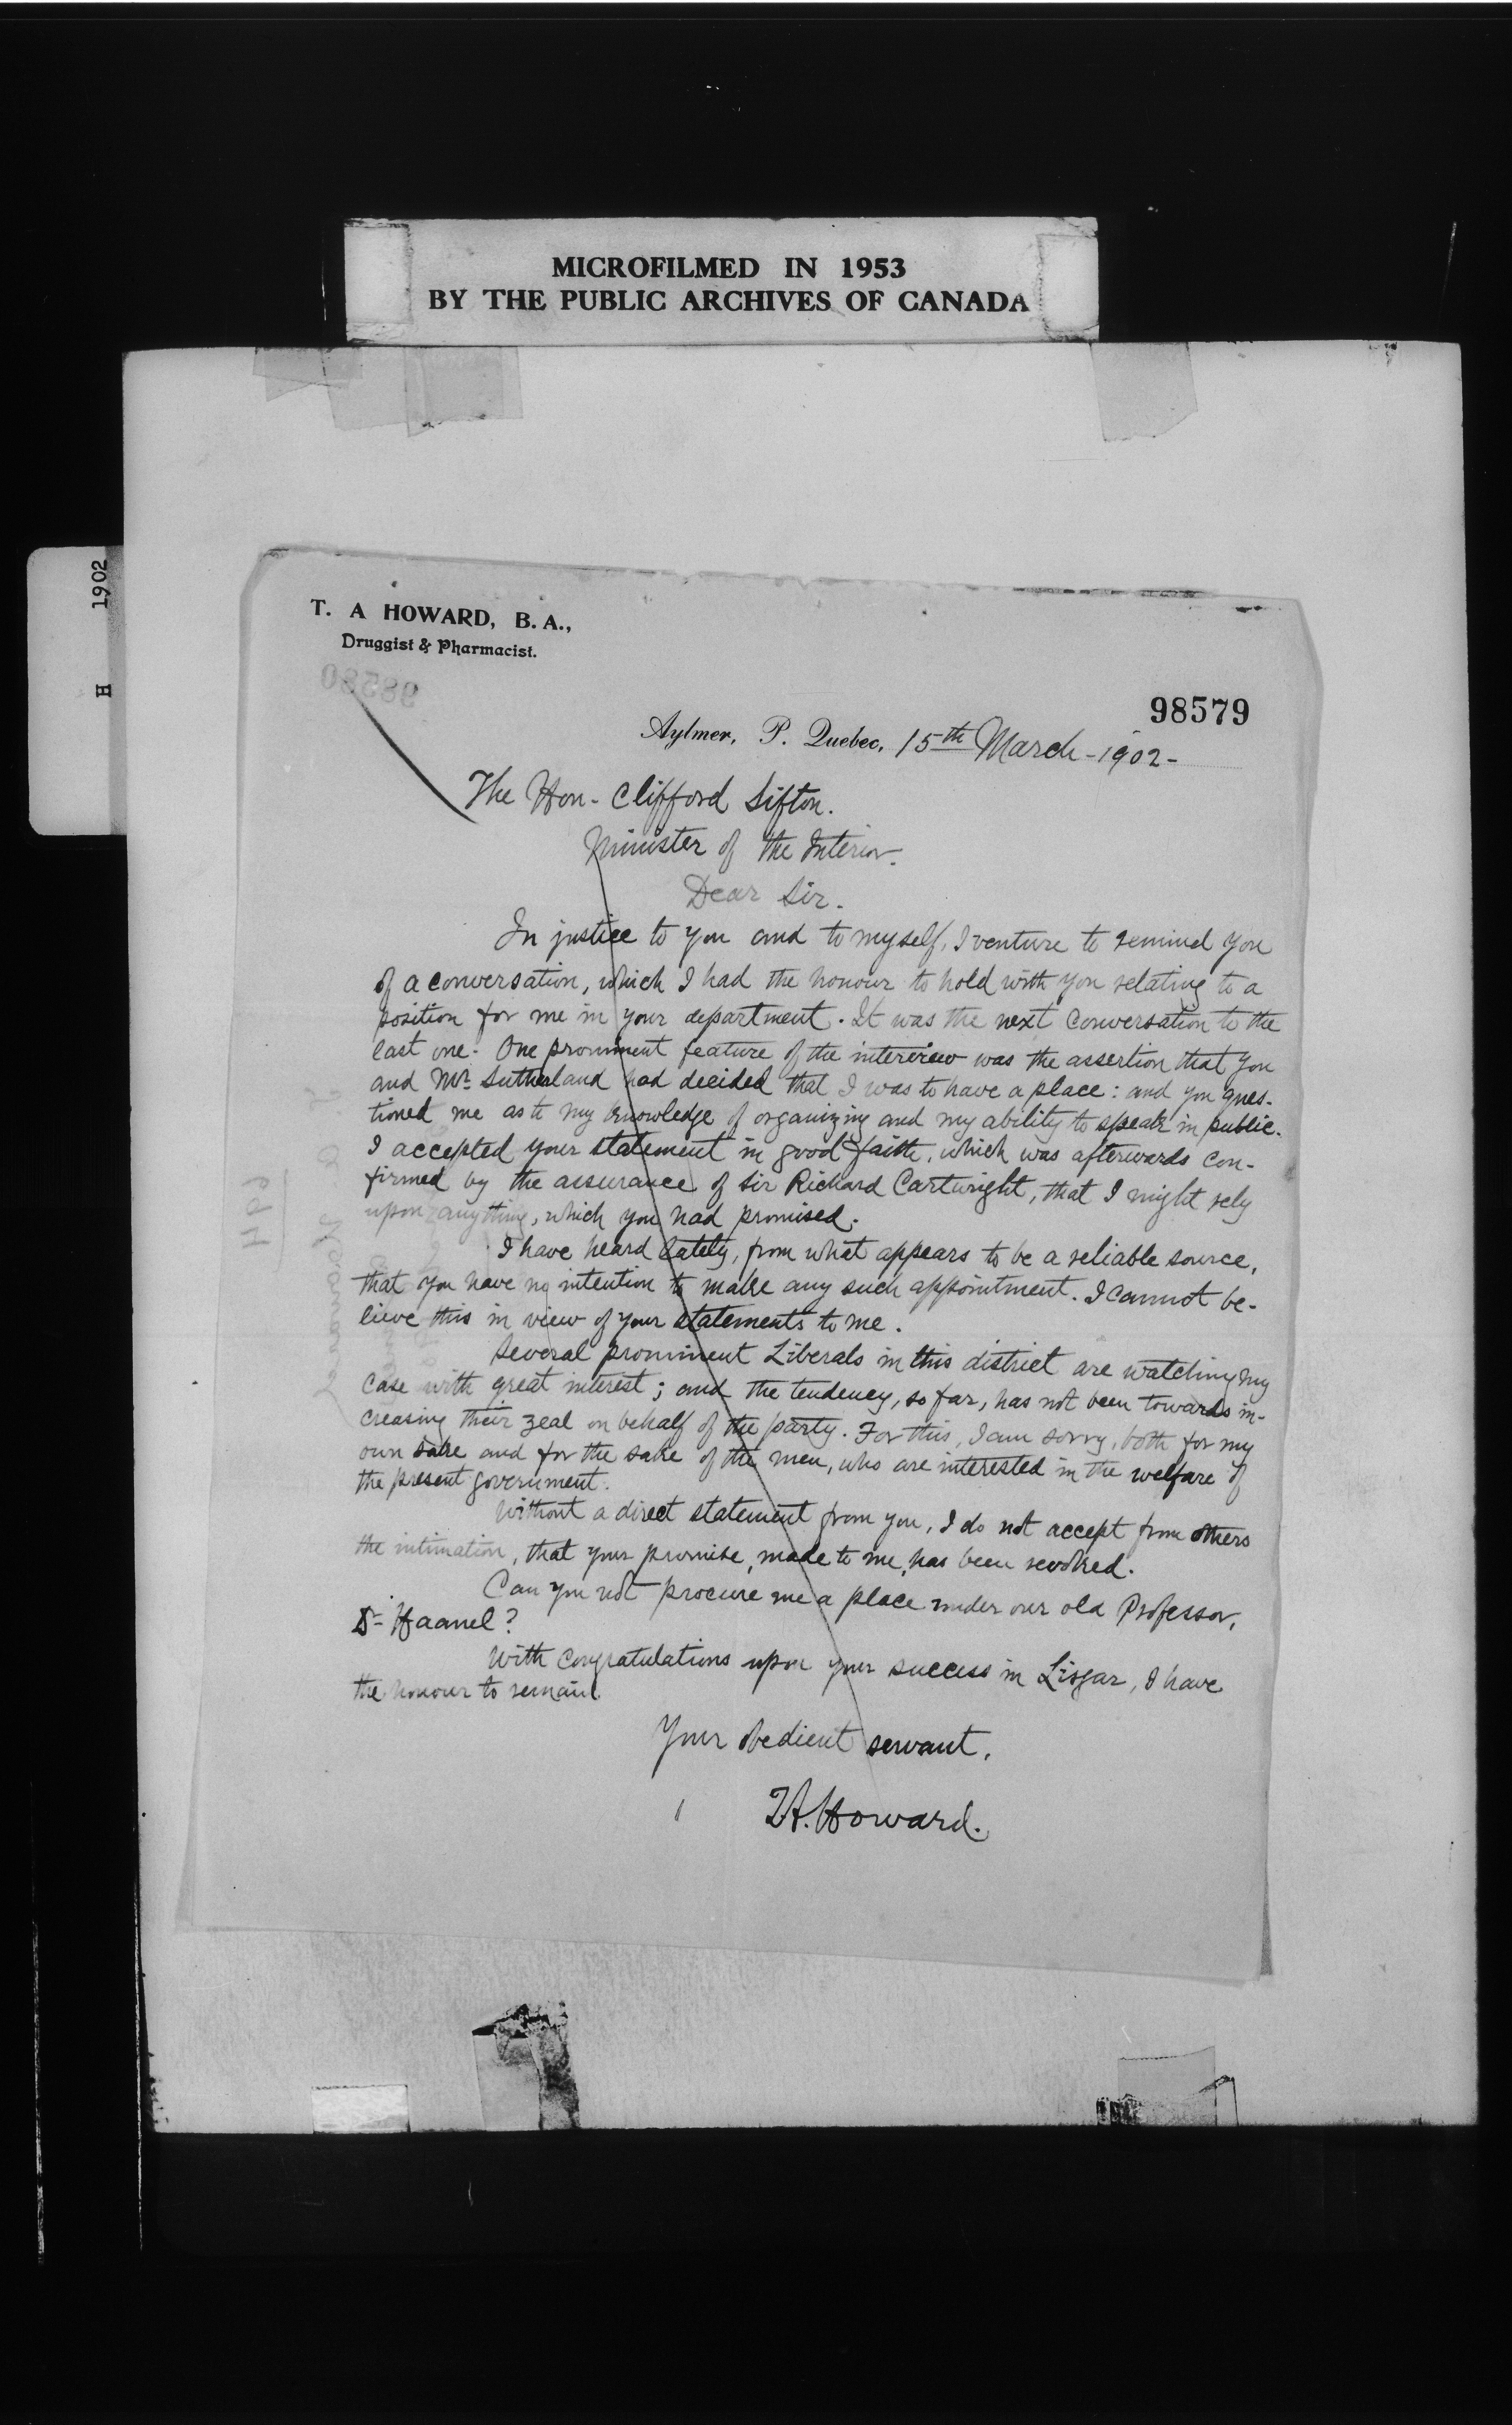 MICROFILMED IN 1953
BY THE PUBLIC ARCHIVES OF CANADA
1902
H
T. A HOWARD, B. A.,
Druggist & Pharmacist.
98580
98579
Aylmer, P. Quebec, 15th March - 1902 -
The Hon. Clifford Sifton.
Minister of the Interior.
Dear Sir.
In justice to you and to myself, I venture to remind you
of a conversation, which I had the honour to hold with you relating to a
position for me in your department. It was the next conversation to the
last one. One prominent feature of the interview was the assertion that you
and Mr. Sutherland had decided that I was to have a place: and you ques-
tioned me as to my knowledge of organizing and my ability to speak in public.
I accepted your statement in good faith, which was afterwards con-
firmed by the assurance of Sir Richard Cartwright, that I might rely
upon anything, which you had promised.
I have heard lately, from what appears to be a reliable source,
that you have no intention to make any such appointment. I cannot be-
lieve this in view of your statements to me.
Several prominent Liberals in this district are watching my
case with great interest; and the tendency, so far, has not been towards in-
creasing their zeal on behalf of the party. For this, I am sorry, both for my
own sake and for the sake of the men, who are interested in the welfare of
the present government.
Without a direct statement from you, I do not accept from others
the intimation, that your promise, made to me, has been revoked.
Can you not procure me a place under our old Professor,
Dr Haanel?
With congratulations upon your success in Lisgar, I have
the honour to remain
Your obedient servant,
T.A. Howard.